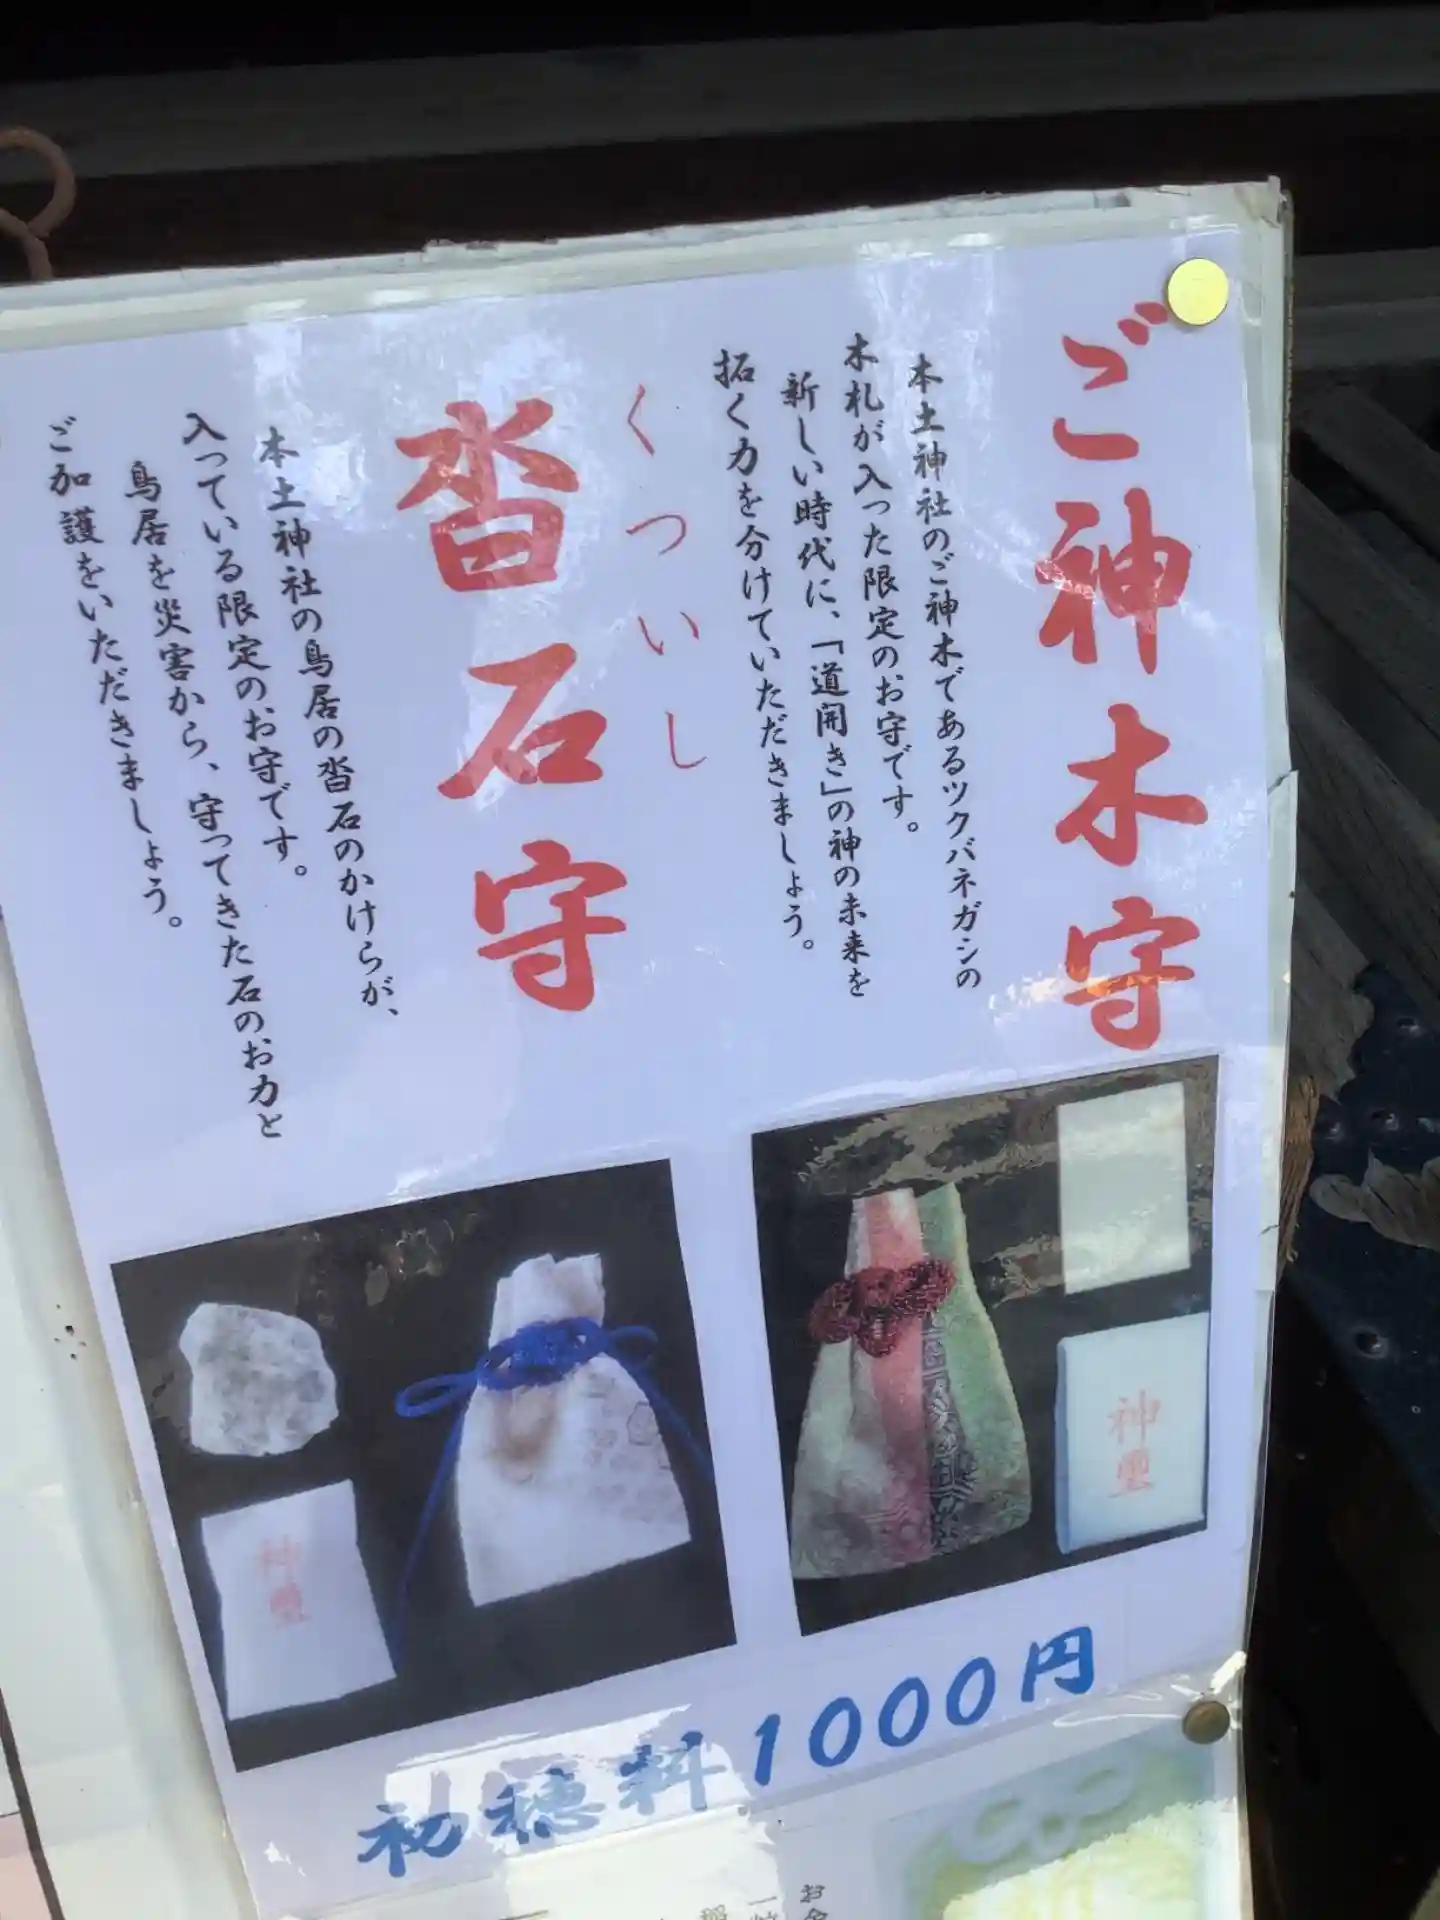 ご神木守
本土神社のご神木であるツクバネガシの
木札が入った限定のお守です。
新しい時代に、「道開き」の神の未来を
拓く力を分けていただきましょう。
くついし
沓石守
本土神社の鳥居の沓石のかけらが、
入っている限定のお守です。
鳥居を災害から、守ってきた石のお力と
ご加護をいただきましょう。
神璽
神璽
初穂料1000円